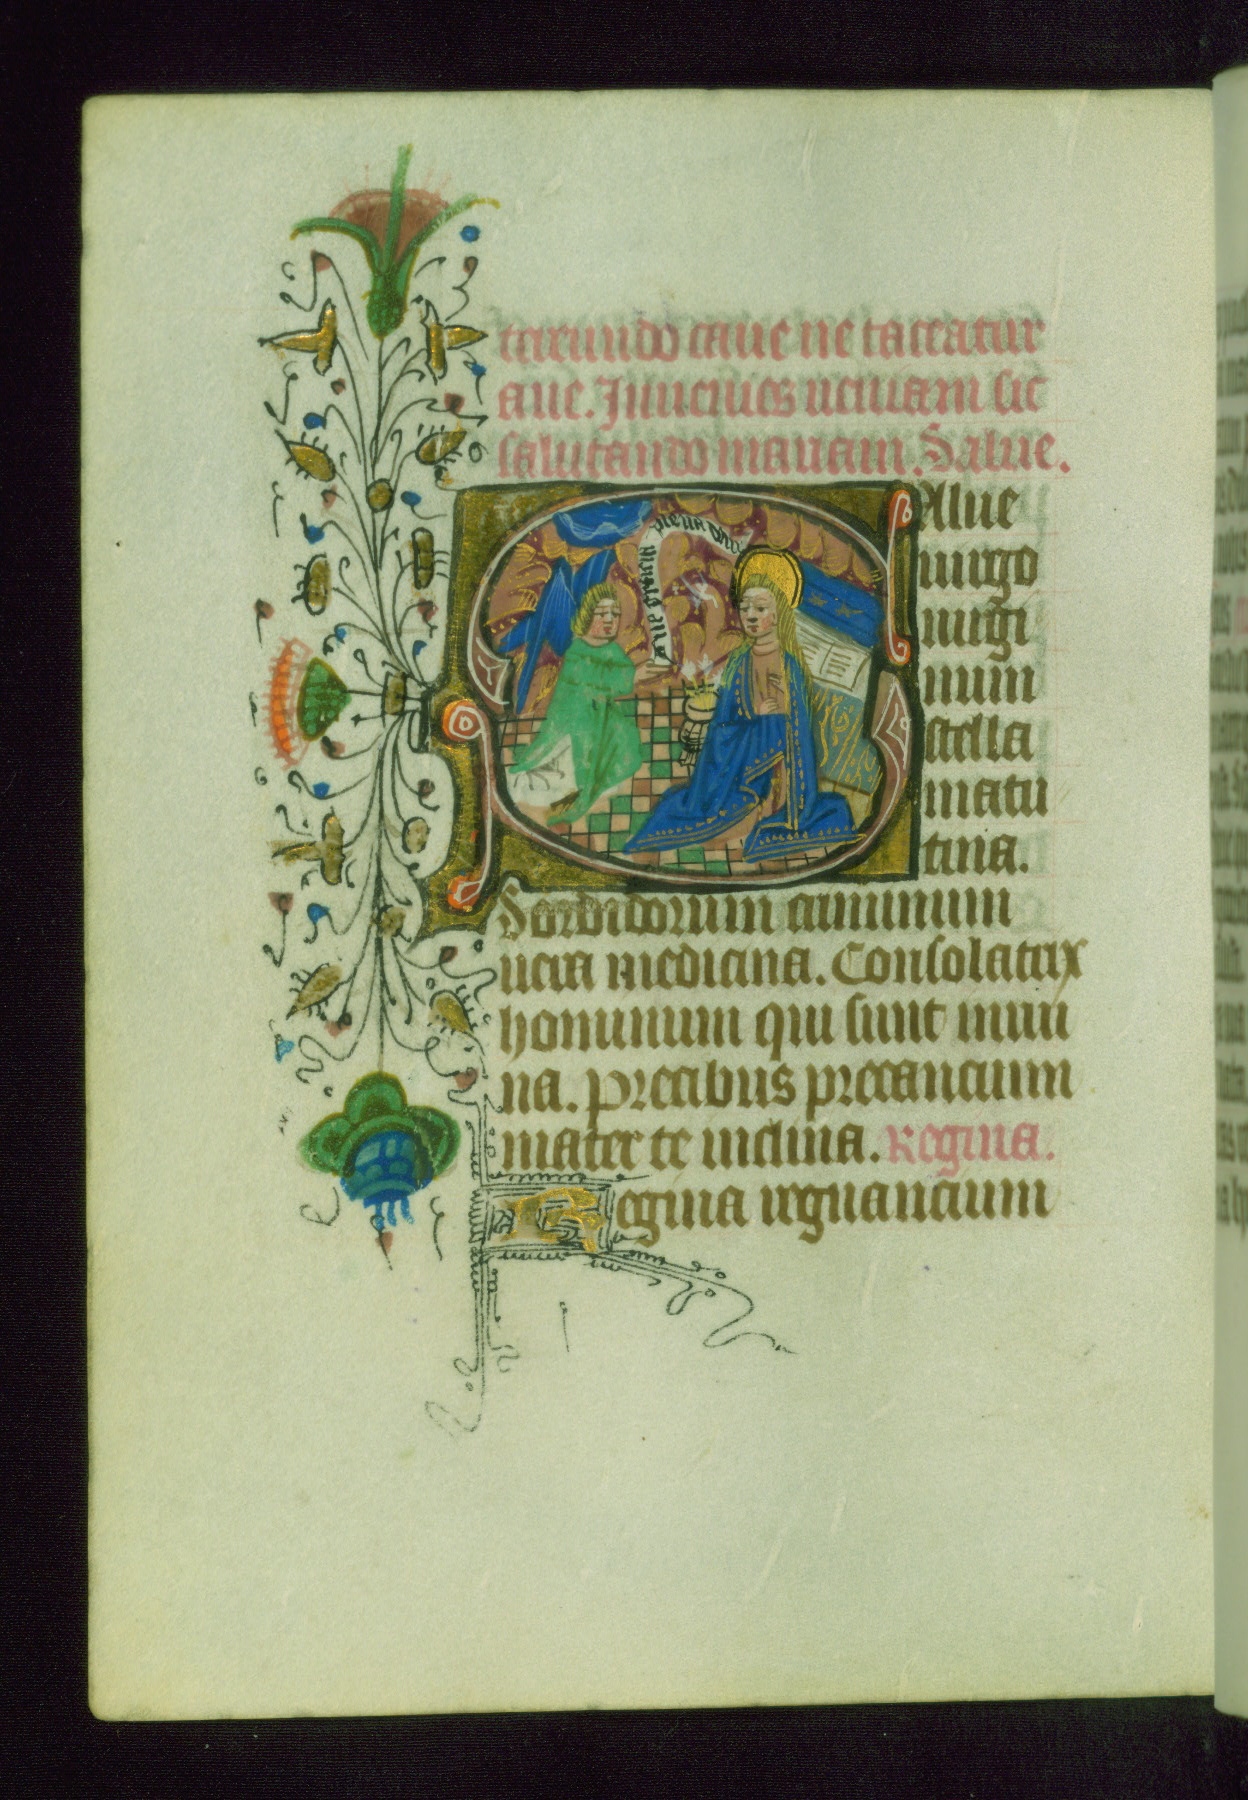 tereundo caue ne taceatur
aue. Inuenies ueniam sic
salutando mariam. Salue.
Alue
uirgo
uirgi
num
stella
matu
tina.
Sordidorum criminum
uera medicina. Consolatrix
hominum qui sunt in rui
na. Precibus precancium
mater te inclina. Regina.
Regina regnancium
aue gracia plena dns